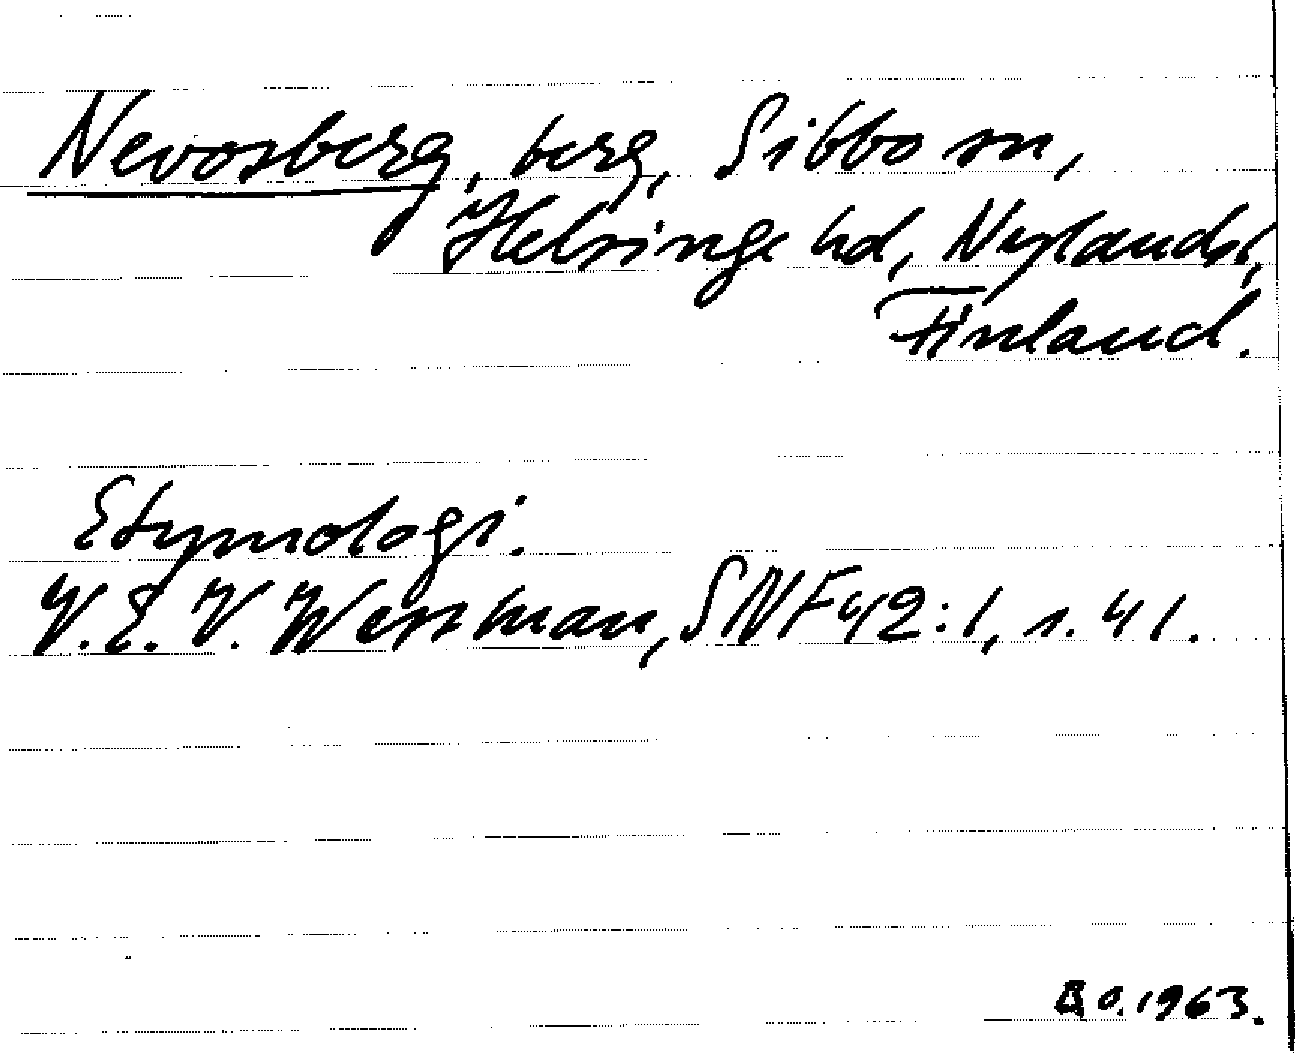 Nevosberg, berg, Sibbo sn,
Helsinge hd, Nylands l,
Finland.
Etymologi.
V. E. V. Wessman, SNF 42:1, s. 41.
B O. 1963.